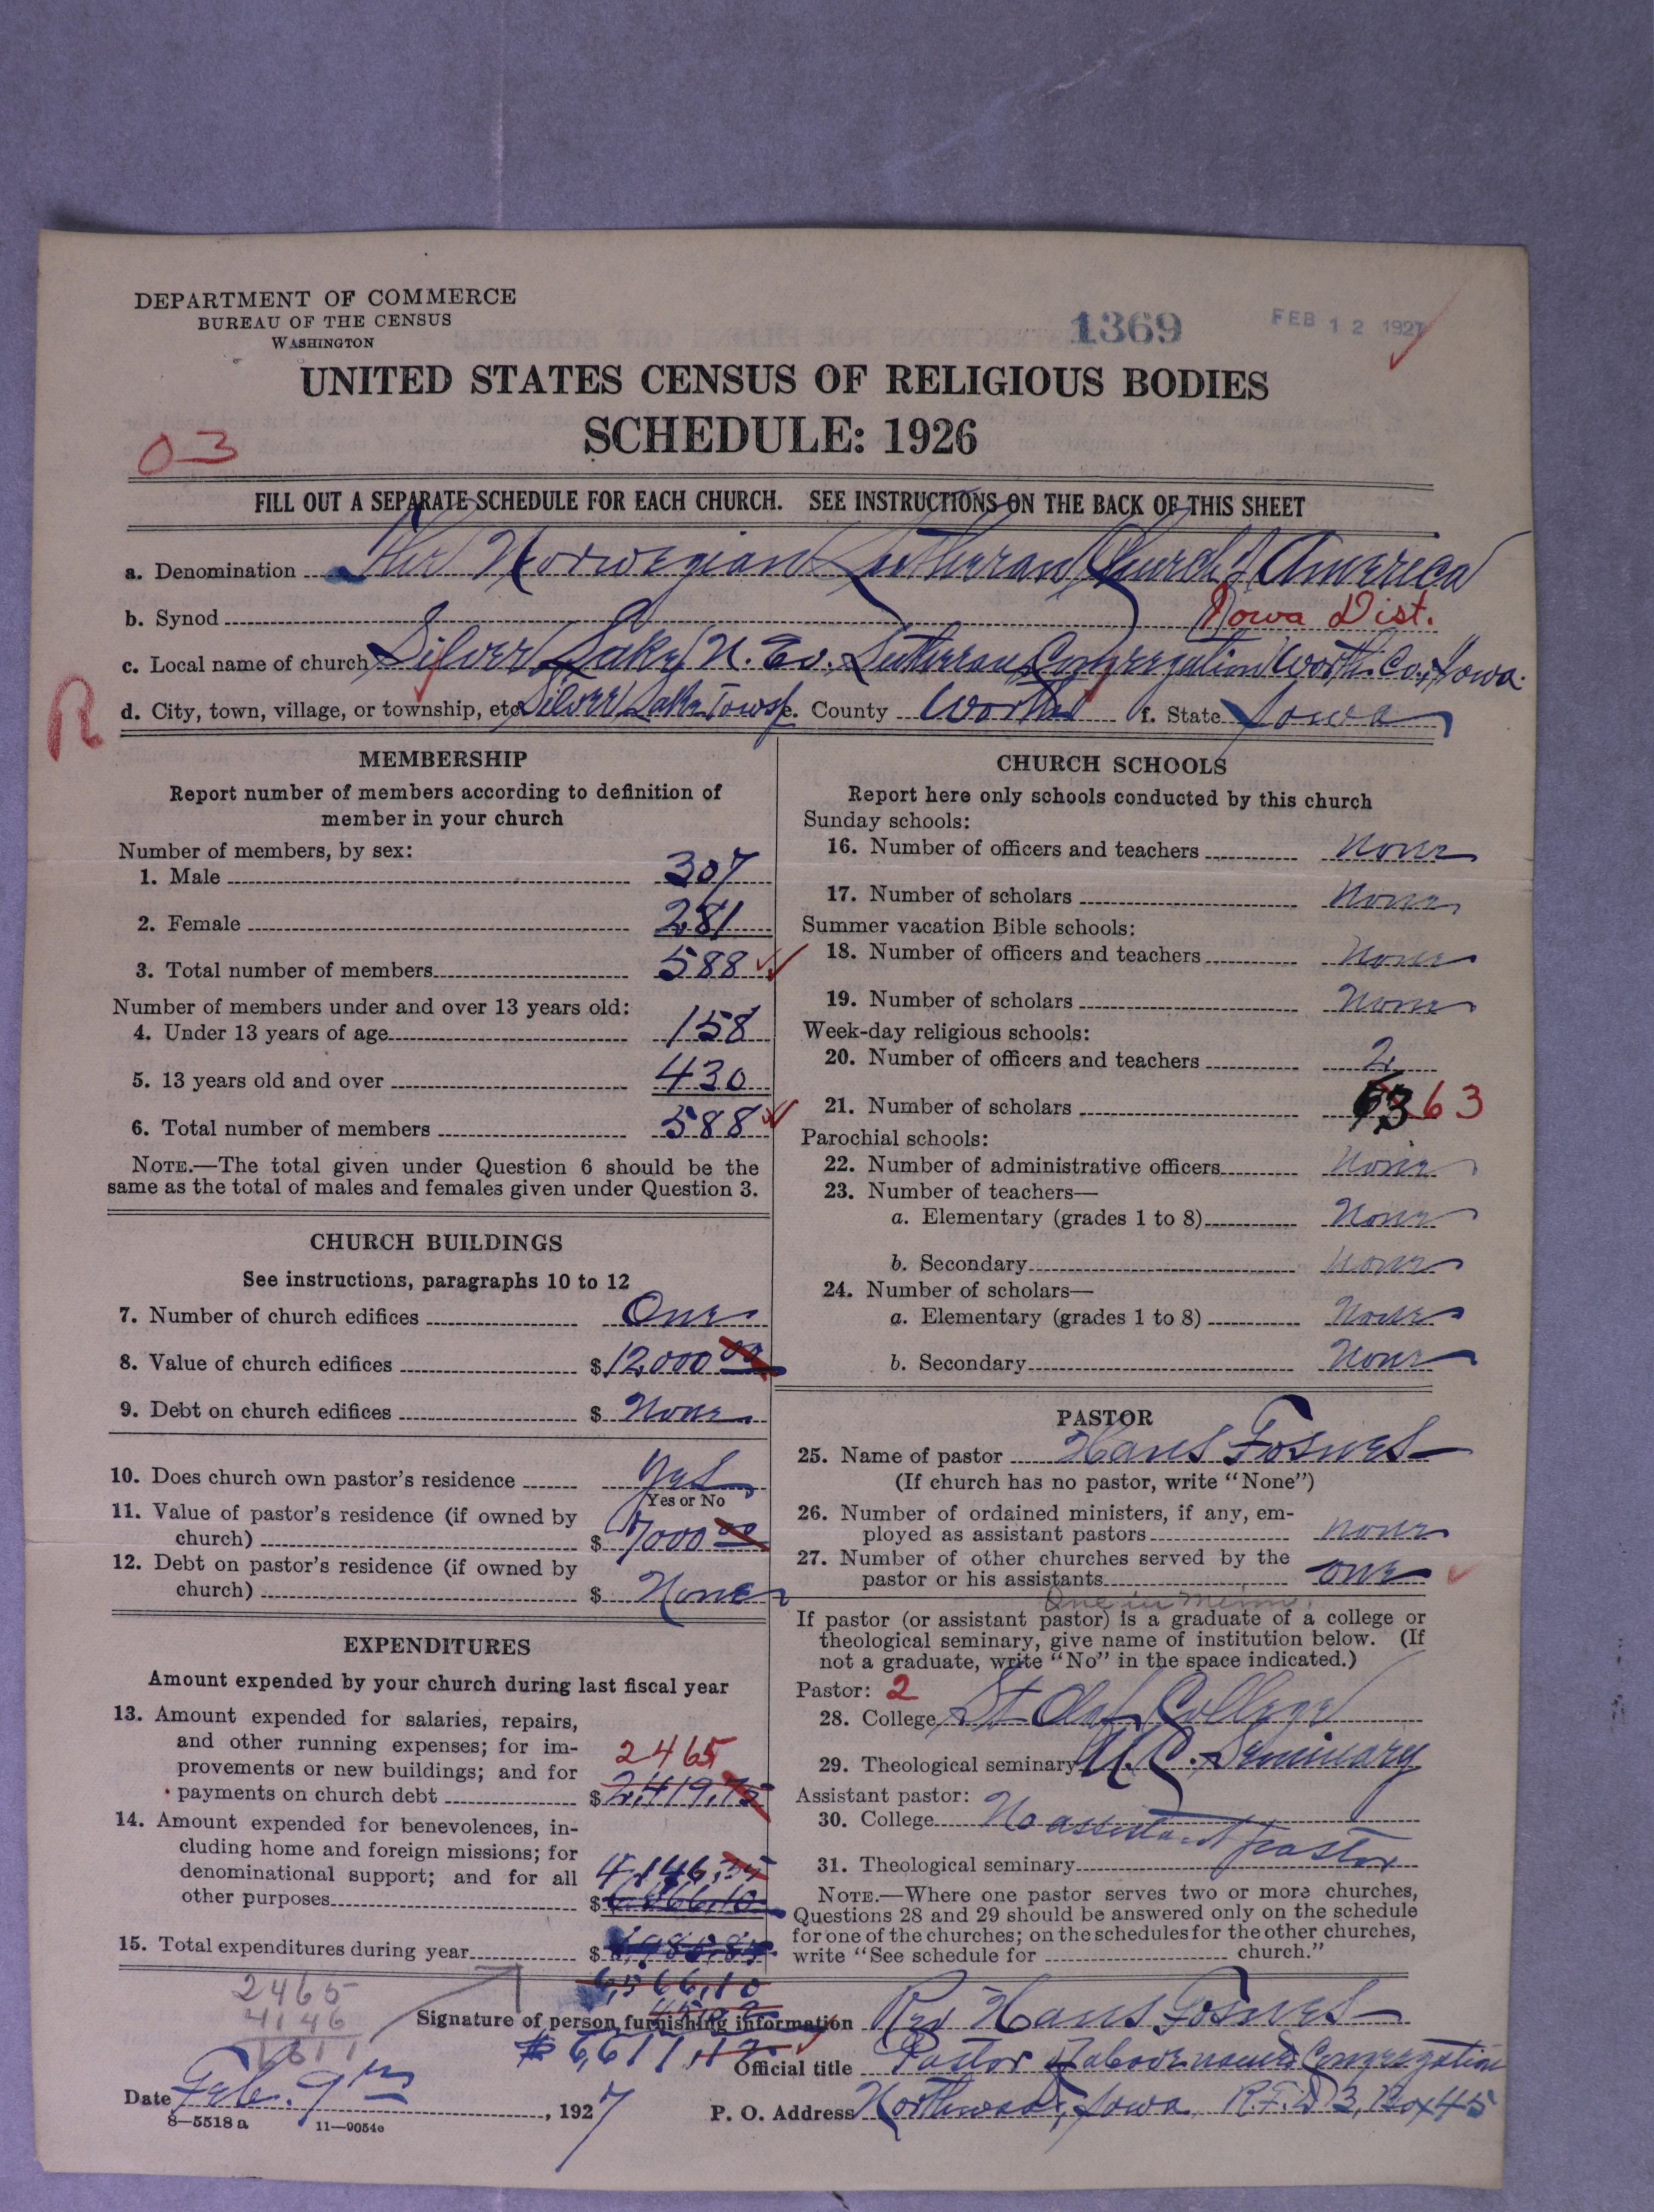 DEPARTMENT OF COMMERCE
BUREAU OF THE CENSUS
WASHINGTON
1369
FEB 12 1927
UNITED STATES CENSUS OF RELIGIOUS BODIES
SCHEDULE: 1926
03
FILL OUT A SEPARATE SCHEDULE FOR EACH CHURCH. SEE INSTRUCTIONS ON THE BACK OF THIS SHEET
a. Denomination The Norwegian Lutheran Church of America
b. Synod Iowa Dist.
c. Local name of church Silver Lake N. Ev. Lutheran Congregation Worth Co., Iowa.
R
d. City, town, village, or township, etc. Silver Lake Towsp. e. County Worth f. State Iowa
MEMBERSHIP
Report number of members according to definition of
member in your church
Number of members, by sex:
1. Male 307
2. Female 281
3. Total number of members 588
Number of members under and over 13 years old:
4. Under 13 years of age 158
5. 13 years old and over 430
6. Total number of members 588
NOTE.—The total given under Question 6 should be the
same as the total of males and females given under Question 3.
CHURCH BUILDINGS
See instructions, paragraphs 10 to 12
7. Number of church edifices One
8. Value of church edifices $12,000 00
9. Debt on church edifices $ None
10. Does church own pastor's residence Yes
Yes or No
11. Value of pastor's residence (if owned by
church) $ 7000 00
12. Debt on pastor's residence (if owned by
church) $ None
EXPENDITURES
Amount expended by your church during last fiscal year
13. Amount expended for salaries, repairs,
and other running expenses; for im-
2465
provements or new buildings; and for
payments on church debt $ 2,419.75
14. Amount expended for benevolences, in-
cluding home and foreign missions; for
denominational support; and for all 4,146.35
other purposes $
15. Total expenditures during year $
6,566,10
2465
4146
6611
$ 6,611.
CHURCH SCHOOLS
Report here only schools conducted by this church
Sunday schools:
16. Number of officers and teachers None
17. Number of scholars None
Summer vacation Bible schools:
18. Number of officers and teachers None
19. Number of scholars None
Week-day religious schools:
20. Number of officers and teachers 2
21. Number of scholars 63 63
Parochial schools:
22. Number of administrative officers None
23. Number of teachers—
a. Elementary (grades 1 to 8) None
b. Secondary None
24. Number of scholars—
a. Elementary (grades 1 to 8) None
b. Secondary None
PASTOR
25. Name of pastor Hans Fosnes
(If church has no pastor, write "None")
26. Number of ordained ministers, if any, em-
ployed as assistant pastors none
27. Number of other churches served by the
pastor or his assistants one
One in Minn.
If pastor (or assistant pastor) is a graduate of a college or
theological seminary, give name of institution below. (If
not a graduate, write "No" in the space indicated.)
Pastor: 2
28. College St Olaf College
29. Theological seminary U. C. Seminary
Assistant pastor:
30. College No assistant pastor
31. Theological seminary
NOTE.—Where one pastor serves two or more churches,
Questions 28 and 29 should be answered only on the schedule
for one of the churches; on the schedules for the other churches,
write "See schedule for church."
Signature of person furnishing information Rev Hans Fosnes
Official title Pastor of above named Congregation
Date Feb. 9th, 1927
P. O. Address Northwood, Iowa, R.F.D 3, Box 45
8—5518 a 11—9054e